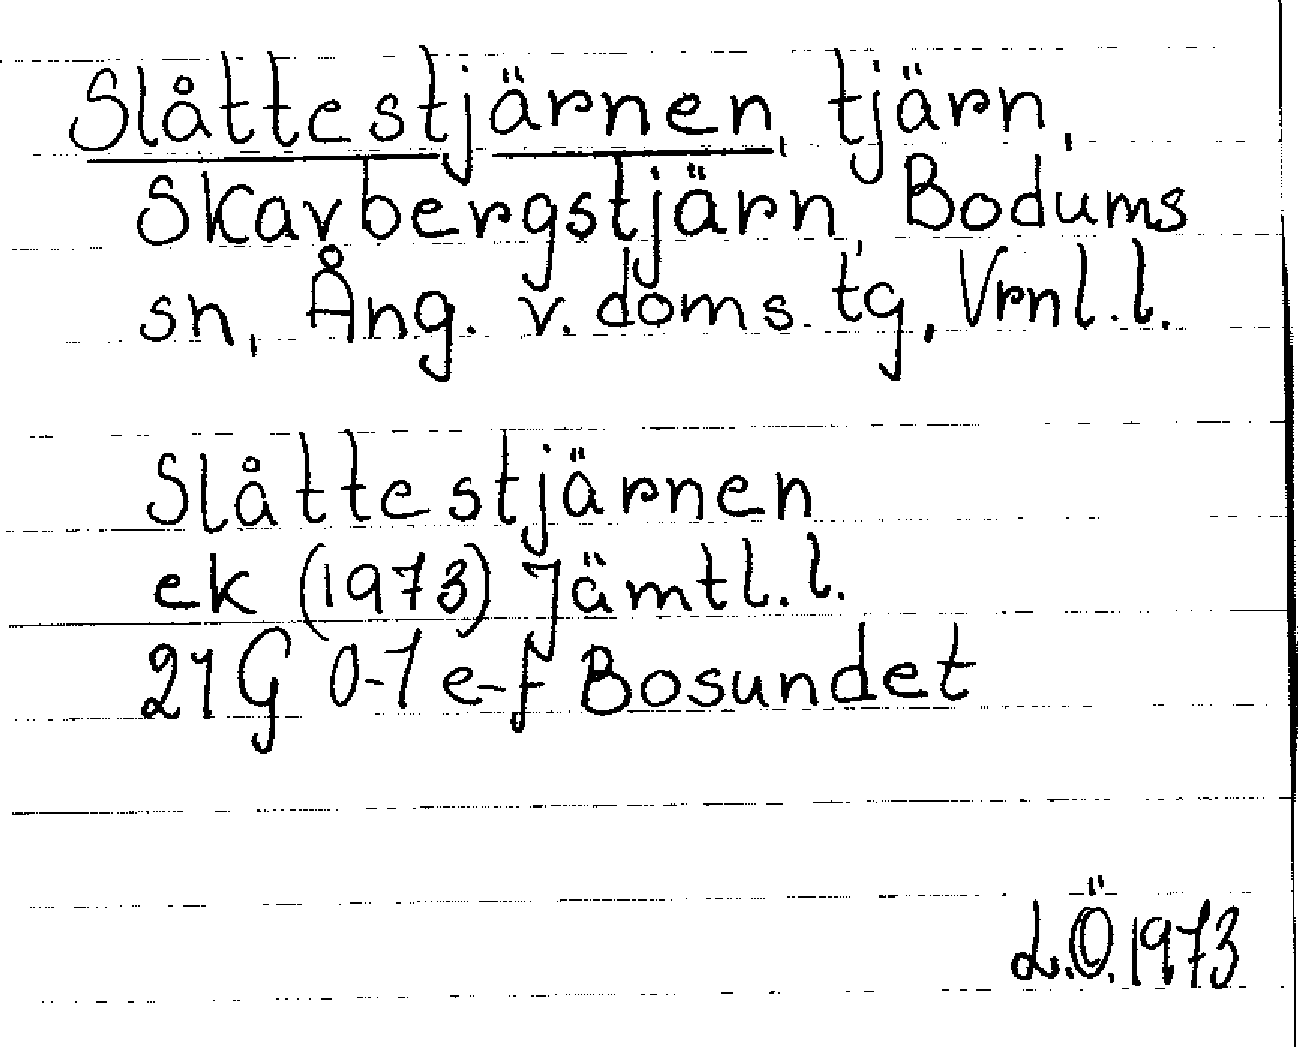 Slåttestjärnen, tjärn,
Skarbergstjärn, Bodums
sn, Ång. v. doms. tg, Vrnl. l.
Slåttestjärnen
ek (1973) Jämtl. l.
21G 0-1 e-f Bosundet
L.Ö. 1973